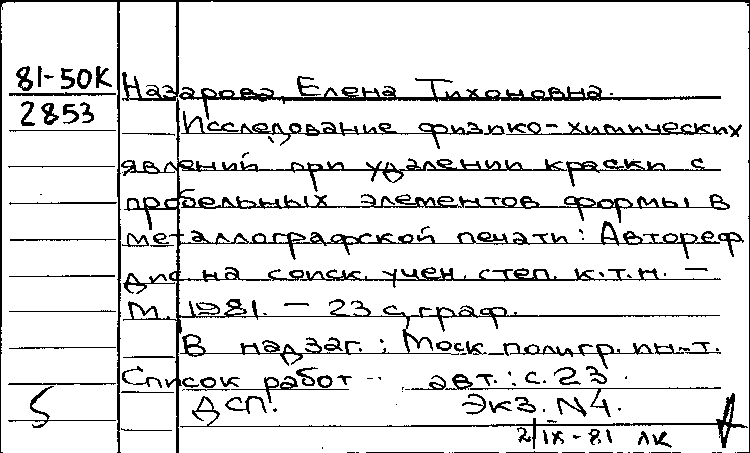 81-50К
2853
Назарова, Елена Тихоновна.
Исследование физико-химических
явлений при удалении краски с
пробельных элементов формы в
металлографской печати: Автореф
дис на соиск. учен. степ. к.т.н. –
М. 1981. – 23 с, граф.
В надзаг.: Моск полигр. ин-т.
Список работ авт.: с. 23.
ДСП. Экз. N4.
2/IX-81 ЛК